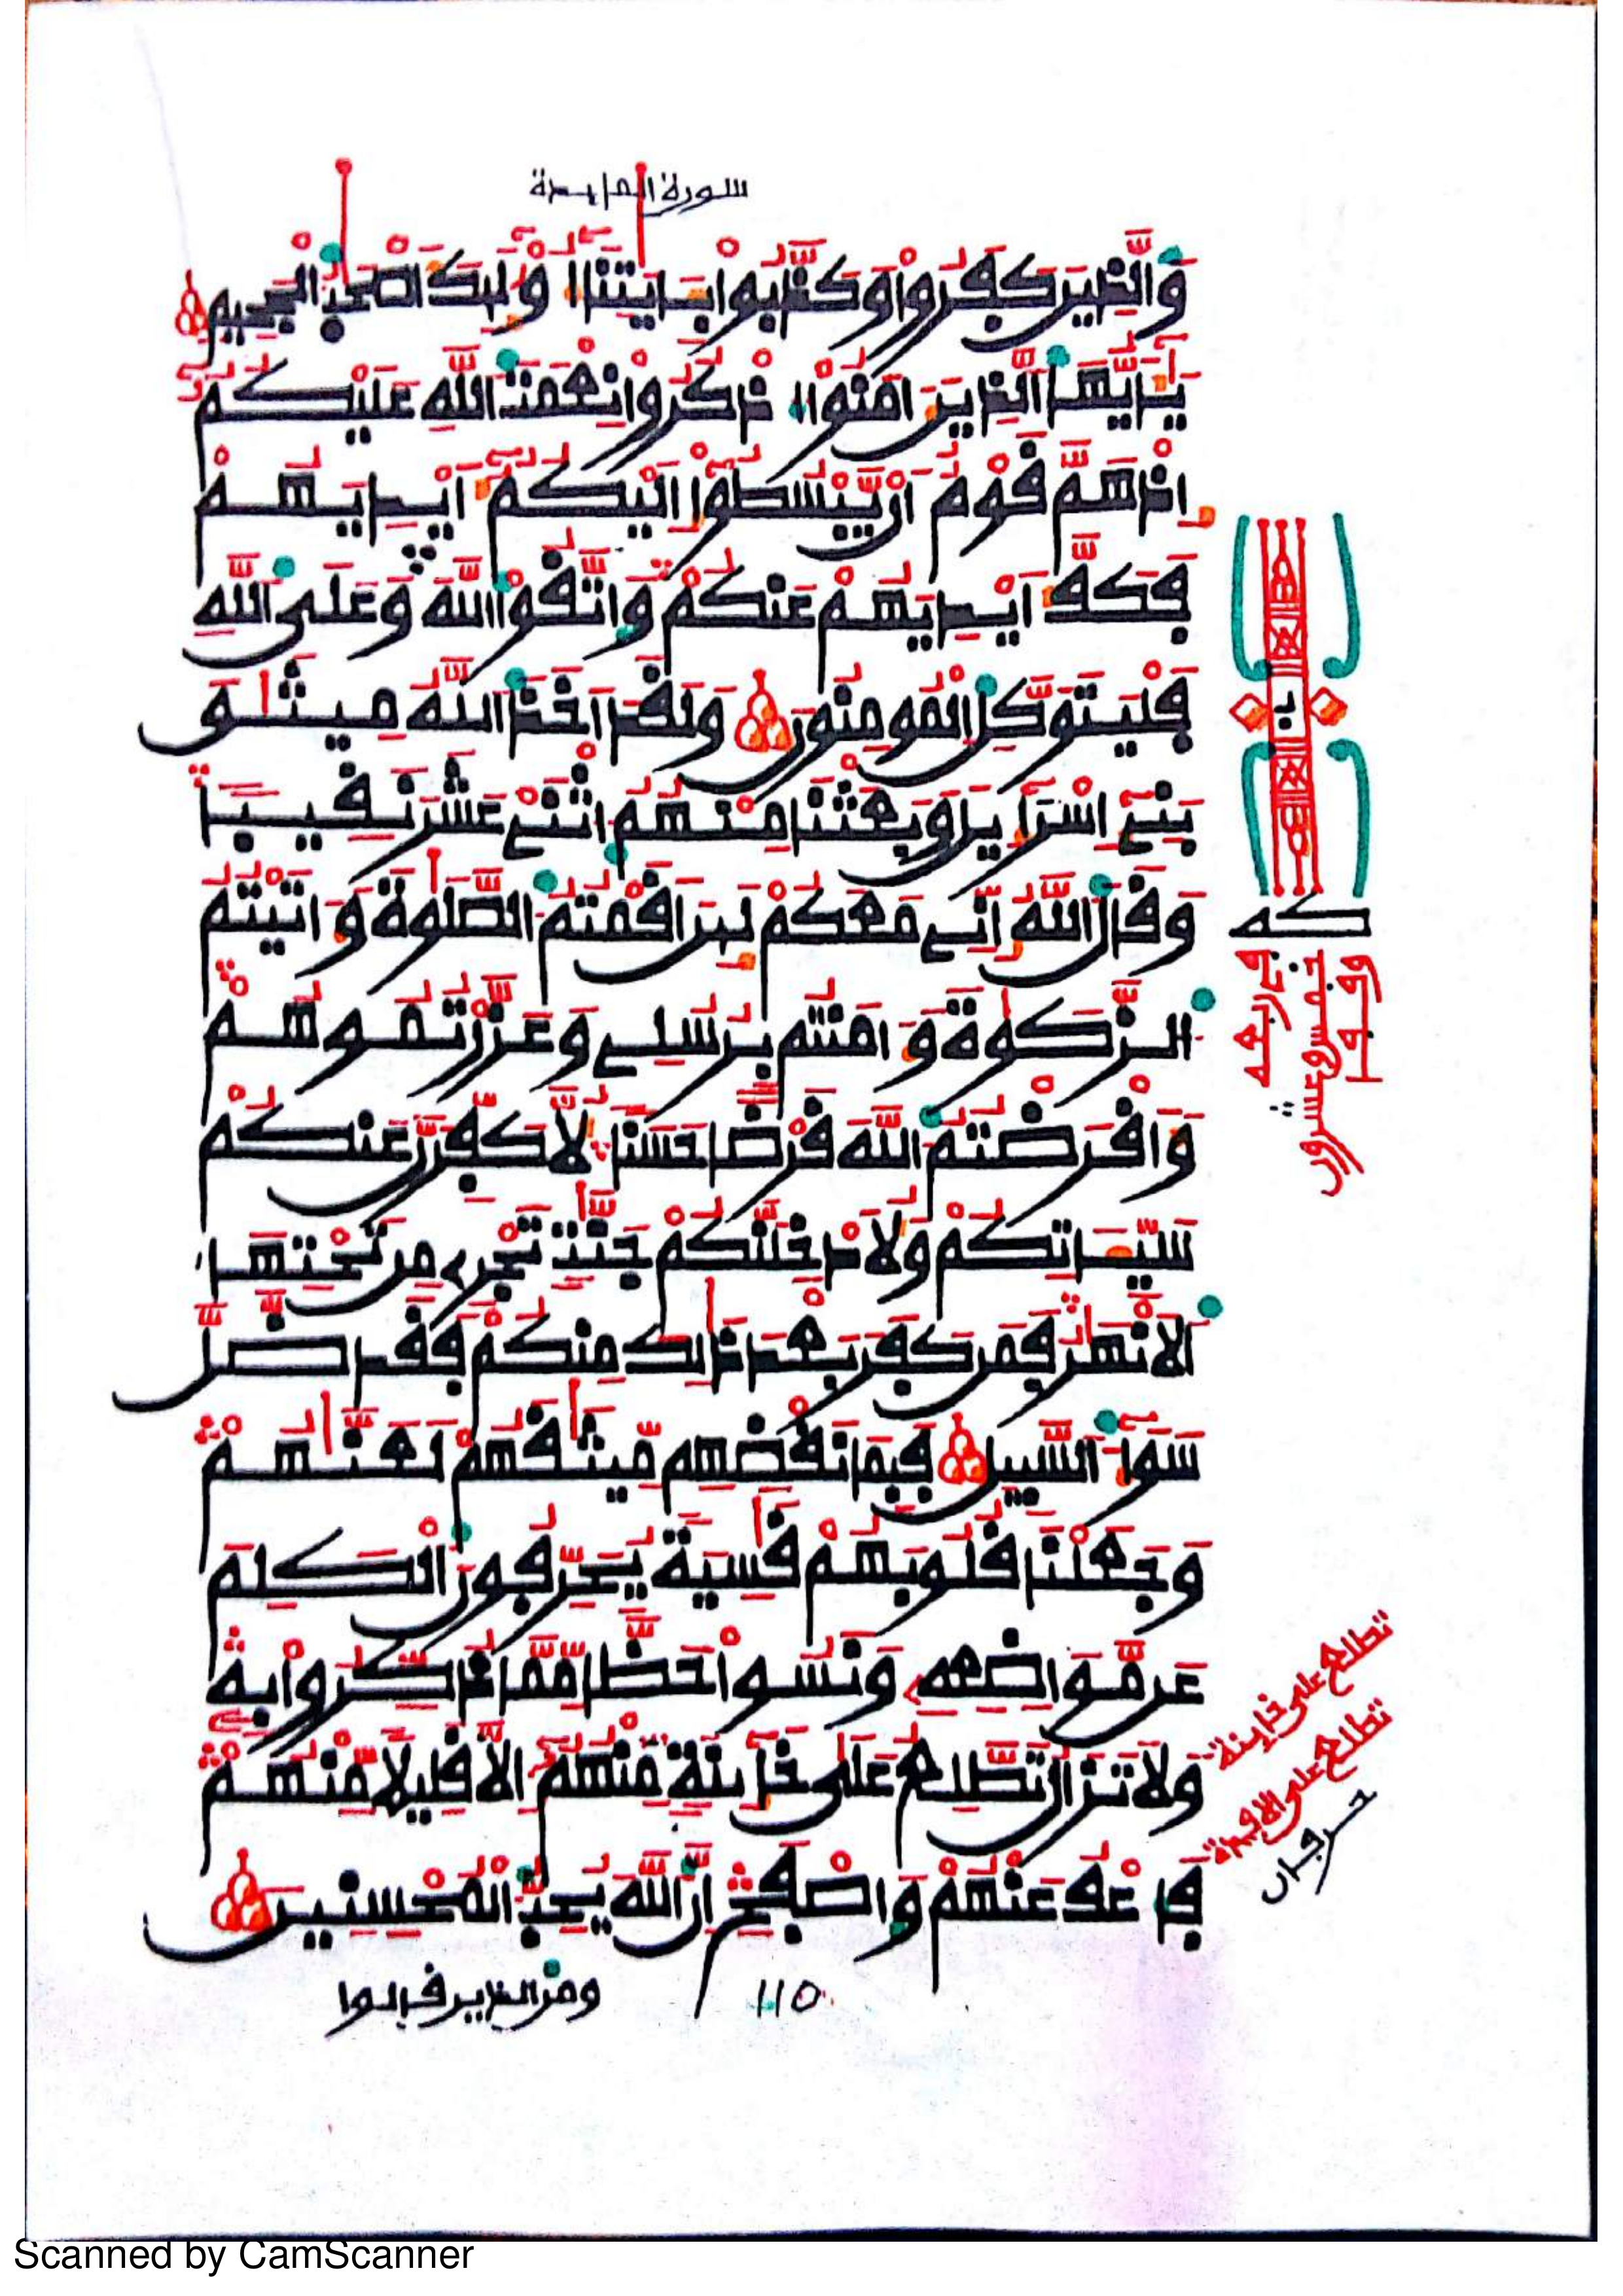 سورة المايدة
وَالَّذِينَ كَفَرُوا وَكَذَّبُوا بِـَٔايَٰتِنَآ أُوْلَٰٓئِكَ أَصْحَٰبُ الْجَحِيمِ
يَٰٓأَيُّهَا الَّذِينَ ءَامَنُوا اذْكُرُوا نِعْمَتَ اللَّهِ عَلَيْكُمُۥٓ
إِذْ هَمَّ قَوْمٌ أَنْ يَّبْسُطُوٓا إِلَيْكُمُۥٓ أَيْدِيَهُمْ
فَكَفَّ أَيْدِيَهُمْ عَنْكُمْ وَاتَّقُوا اللَّهَ وَعَلَى اللَّهِ
فَلْيَتَوَكَّلِ الْمُومِنُونَ وَلَقَدَ اَخَذَ اللَّهُ مِيثَٰقَ
بَنِےٓ إِسْرَآءِيلَ وَبَعَثْنَا مِنْهُمُ اثْنَےْ عَشَرَ نَقِيبًا
وَقَالَ اللَّهُ إِنِّے مَعَكُمْ لَئِنَ اَقَمْتُمُ الصَّلَوٰةَ وَءَاتَيْتُمُ
الزَّكَوٰةَ وَءَامَنْتُمْ بِرُسُلِے وَعَزَّرْتُمُوهُمْ
وَأَقْرَضْتُمُ اللَّهَ قَرْضًا حَسَنًا لَّأُكَفِّرَنَّ عَنْكُمْ
سَيِّـَٔاتِكُمْ وَلَأُدْخِلَنَّكُمْ جَنَّٰتٍ تَجْرِے مِنْ تَحْتِهَا
الْأَنْهَٰرُ فَمَنْ كَفَرَ بَعْدَ ذَٰلِكَ مِنْكُمْ فَقَدْ ضَّلَّ
سَوَآءَ السَّبِيلِ فَبِمَا نَقْضِهِمْ مِّيثَٰقَهُمْ لَعَنَّٰهُمْ
وَجَعَلْنَا قُلُوبَهُمْ قَٰسِيَةً يُحَرِّفُونَ الْكَلِمَ
عَنْ مَّوَاضِعِهِۦ وَنَسُوا حَظًّا مِّمَّا ذُكِّرُوا بِهِۦ
وَلَا تَزَالُ تَطَّلِعُ عَلَىٰ خَآئِنَةٍ مِّنْهُمُۥٓ إِلَّا قَلِيلًا مِّنْهُمْ
فَاعْفُ عَنْهُمْ وَاصْفَحِ اِنَّ اللَّهَ يُحِبُّ الْمُحْسِنِينَ
ومن الذين قالوا
110
يا
كه
في ربعه
خمس وعشرون
وقفا
تطلع على خاينة
تطلع على الافيدة
حرفان
Scanned by CamScanner